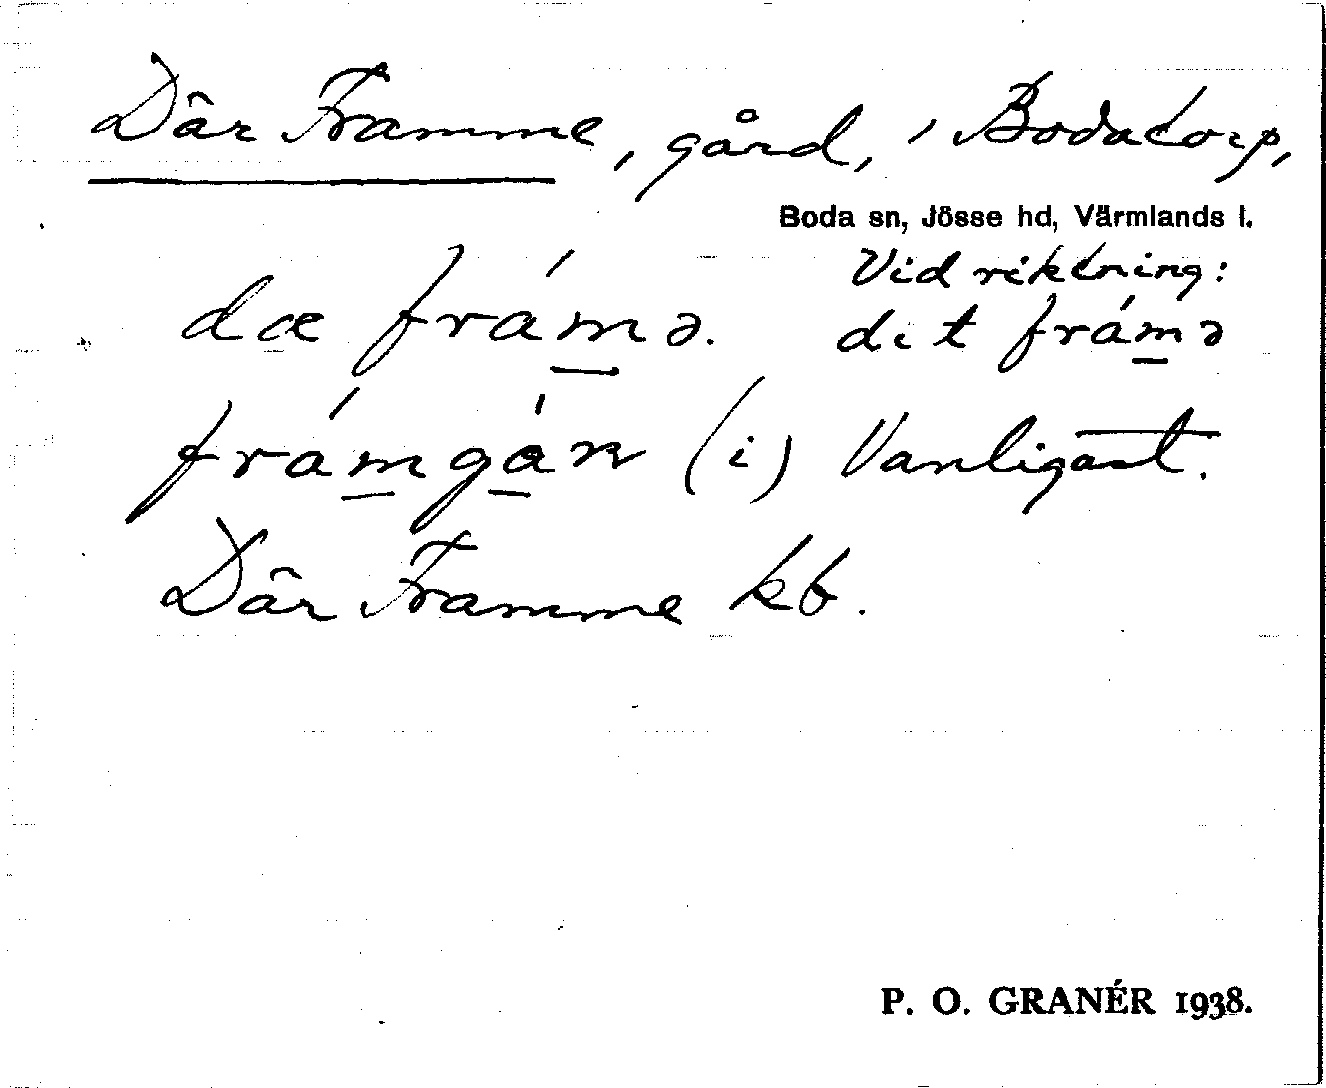 Där Framme, gård, i Bodatorp,
Boda sn, Jösse hd, Värmlands l.
Vid riktning:
dæ frámə. dit frámə
frámgáɳ (i) Vanligast.
Där Framme kb.
P. O. GRANÉR 1938.